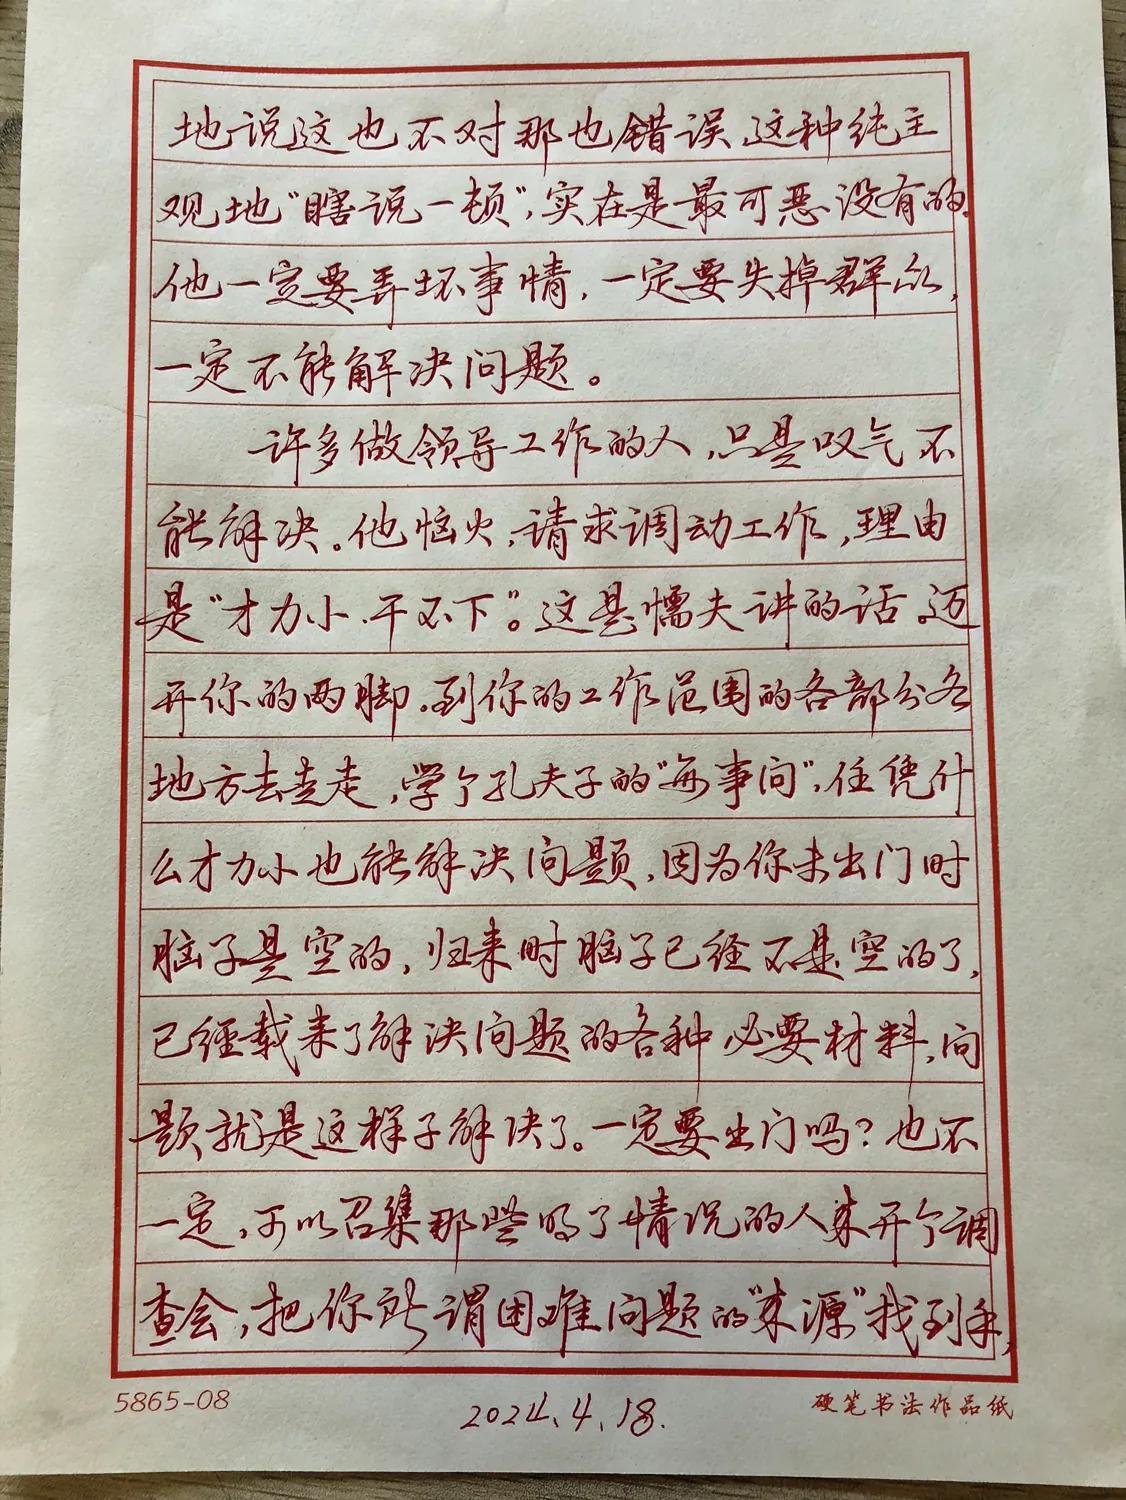 地说这也不对那也错误,这种纯主
观地“瞎说一顿”,实在是最可恶没有的。
他一定要弄坏事情,一定要失掉群众,
一定不能解决问题。
许多做领导工作的人,只是叹气不
能解决。他恼火,请求调动工作,理由
是“才力小,干不下”。这是懦夫讲的话。迈
开你的两脚,到你的工作范围的各部分各
地方去走走,学个孔夫子的“每事问”,任凭什
么才力小也能解决问题,因为你未出门时
脑子是空的,归来时脑子已经不是空的了,
已经载来了解决问题的各种必要材料,问
题就是这样子解决了。一定要出门吗?也不
一定,可以召集那些明了情况的人来开个调
查会,把你所谓困难问题的“来源”找到手,
5865-08
2024.4.18.
硬笔书法作品纸